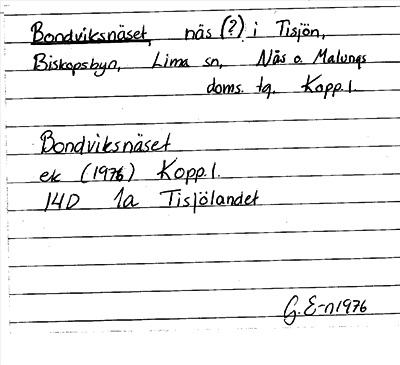 Bondviksnäset, näs (?) i Tisjön,
Biskopsbyn, Lima sn, Näs o. Malungs
doms. tg. Kopp. l.
Bondviksnäset
ek (1976) Kopp. l.
14D 1a Tisjölandet
G. E-n 1976